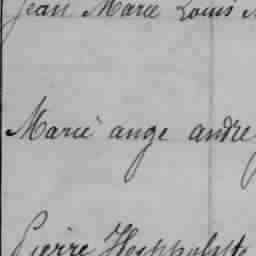 Jean Marie Louis
Marie ange andré
Pierre Hyppolytte